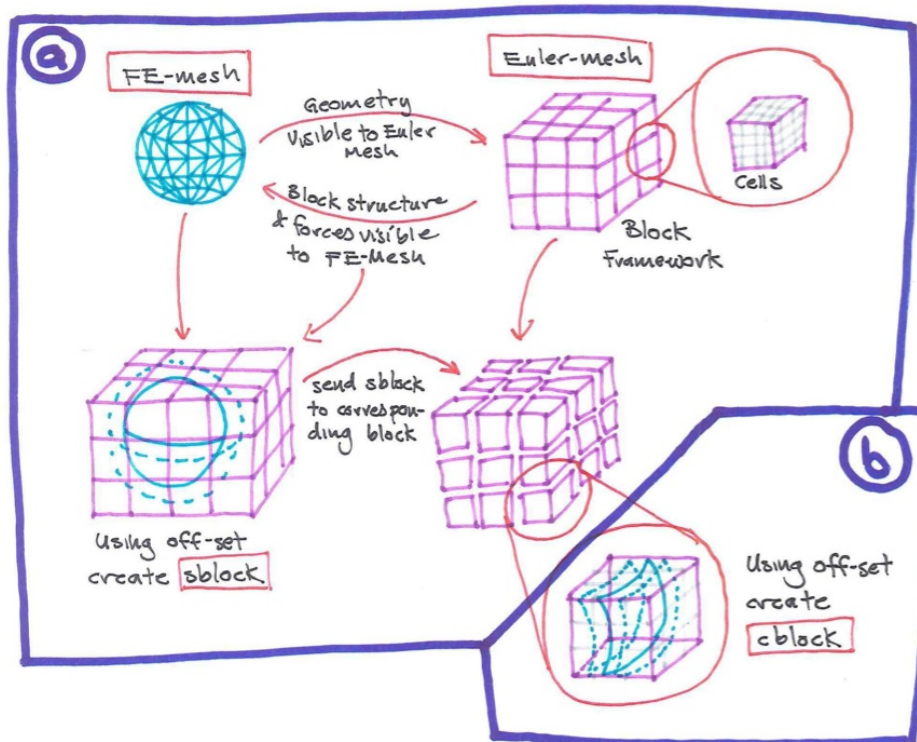 a
FE-mesh
Euler-mesh
Geometry
Visible to Euler
Mesh
Cells
Block structure
& forces visible
to FE-Mesh
Block
Framework
send sblock
to correspon-
ding block
Using off-set
create sblock
b
Using off-set
create
cblock